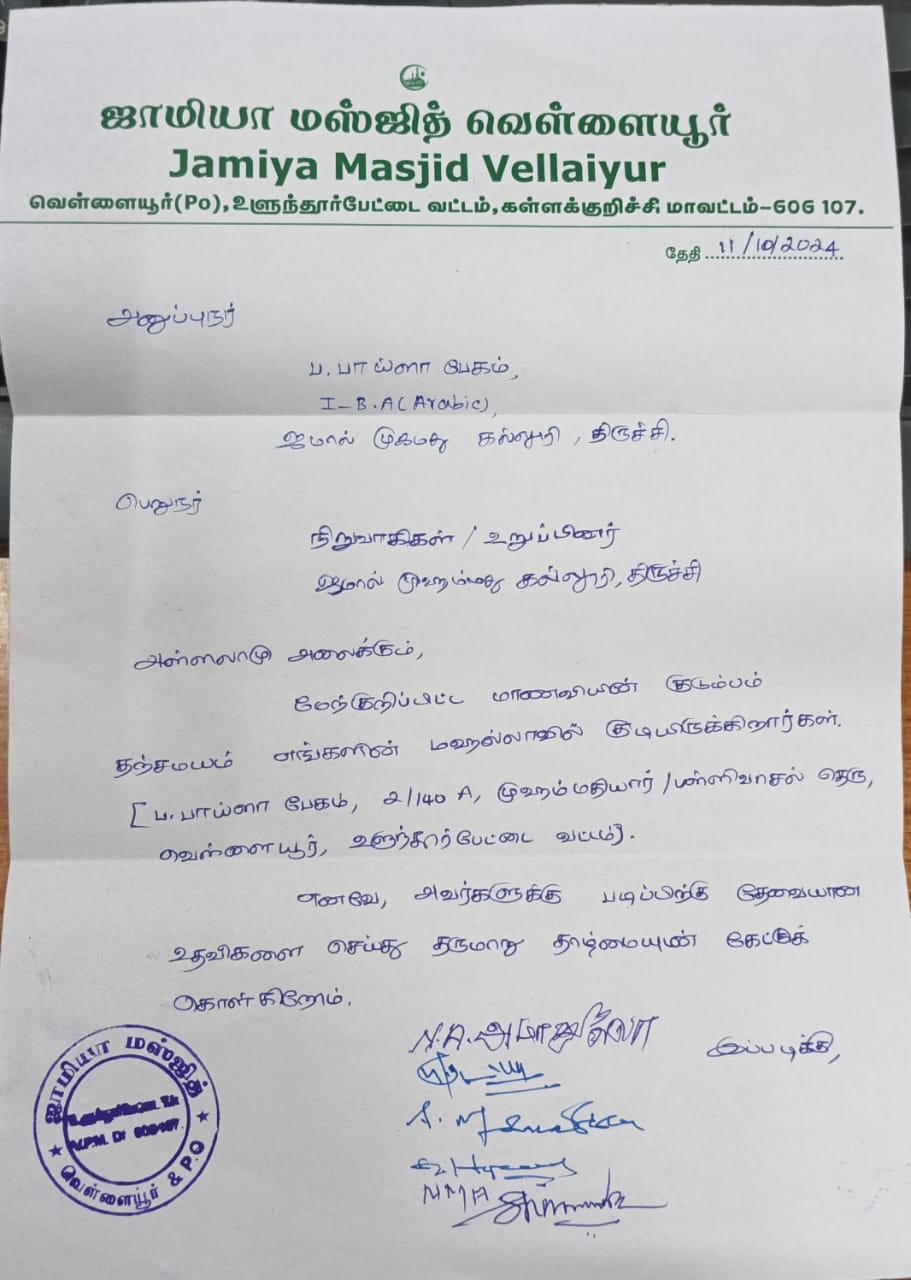 ஜாமியா மஸ்ஜித் வெள்ளையூர்
Jamiya Masjid Vellaiyur
வெள்ளையூர்(Po),உளுந்தூர்பேட்டை வட்டம்,கள்ளக்குறிச்சி மாவட்டம்-606 107.
தேதி 11/10/2024
அனுப்புநர்
ப. பாய்ஸா பேகம்,
I-B.A(Arabic),
ஜமால் முகமது கல்லூரி, திருச்சி.
பெறுநர்
நிறுவாகிகள் / உறுப்பினர்
ஜமால் முஹம்மது கல்லூரி, திருச்சி
அஸ்ஸலாமு அலைக்கும்,
மேற்குறிப்பிட்ட மாணவியின் குடும்பம்
தற்சமயம் எங்களின் மஹல்லாவில் குடியிருக்கிறார்கள்.
[ப.பாய்ஸா பேகம், 2/140 A, முஹம்மதியார் /பள்ளிவாசல் தெரு,
வெள்ளையூர், உளுந்தூர்பேட்டை வட்டம்].
எனவே, அவர்களுக்கு படிப்பிற்கு தேவையான
உதவிகளை செய்து தருமாறு தாழ்மையுடன் கேட்டுக்
கொள்கிறோம்.
இப்படிக்கு,
N.A.
ஜாமியா மஸ்ஜித்
V.P.M. Dt
வெள்ளையூர் & P.O